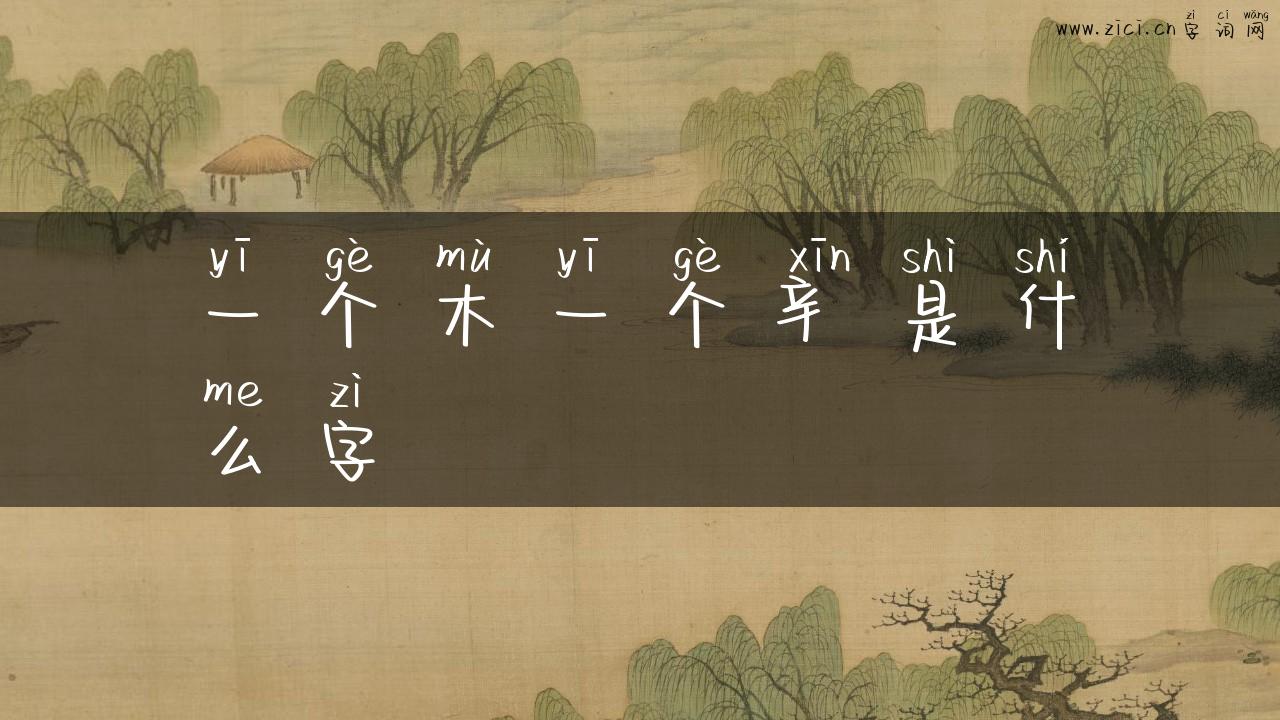 zì cí wǎng
www.zici.cn 字词网
yī gè mù yī gè xīn shì shí
一个木一个辛是什
me zì
么字